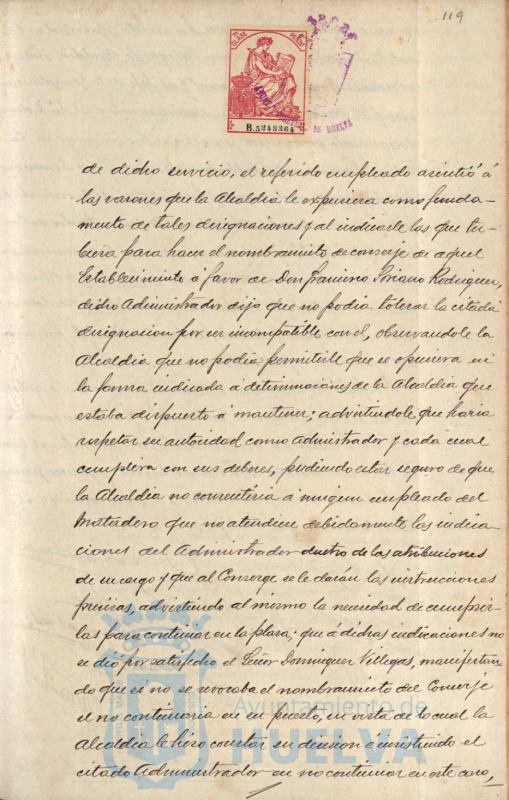 119
B.5248364
DE HUELVA
de dicho servicio, el referido empleado asintió á
las razones que la Alcaldía le expusiera como funda-
mento de tales designaciones y al indicarle las que tu-
biera para hacer el nombramiento de conserje de aquel
Establecimiento á favor de Don Francisco Soriano Rodriguez,
dicho Administrador dijo que no podia tolerar la citada
designacion por ser incompatible con el, observandole la
Alcaldia que no podia permitirle que se opusiera en
la forma indicada á determinaciones de la Alcaldia que
estaba dispuesto á mantener; advirtiendole que haria
respetar su autoridad como Administrador y cada cual
cumpliera con sus deberes, pudiendo estar seguro de que
la Alcaldia no consentiria á ningun empleado del
Matadero que no atendiese debidamente las indica-
ciones del Administrador dentro de las atribuciones
de su cargo y que al Conserge se le darán las instrucciones
precisas, advirtiendo al mismo la necesidad de cumplir-
las para continuar en la plaza; que á dichas indicaciones no
se dió por satisfecho el Señor Dominguez Villegas, manifestan-
do que si no se revocaba el nombramiento del Conserje
el no continuaria en su puesto, en vista de lo cual la
Alcaldia le hizo constar su decision é insistiendo el
citado Administrador en no continuar en este caso,
Ayuntamiento de
HUELVA